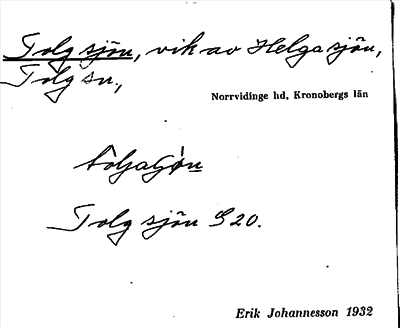 Tolgsjön, vik av Helgasjön,
Tolg sn,
Norrvidinge hd, Kronobergs län
Tolgsjön S 20.
Erik Johannesson 1932